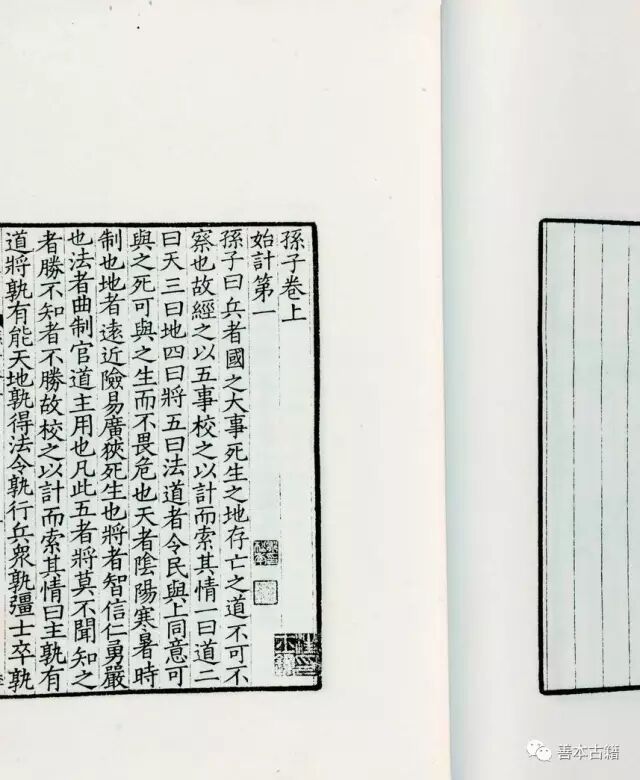 孫子卷上
始計第一
孫子曰兵者國之大事死生之地存亡之道不可不
察也故經之以五事校之以計而索其情一曰道二
曰天三曰地四曰將五曰法道者令民與上同意可
與之死可與之生而不畏危也天者陰陽寒暑時
制也地者遠近險易廣狹死生也將者智信仁勇嚴
也法者曲制官道主用也凡此五者將莫不聞知之
者勝不知者不勝故校之以計而索其情曰主孰有
道將孰有能天地孰得法令孰行兵衆孰彊士卒孰
善本古籍